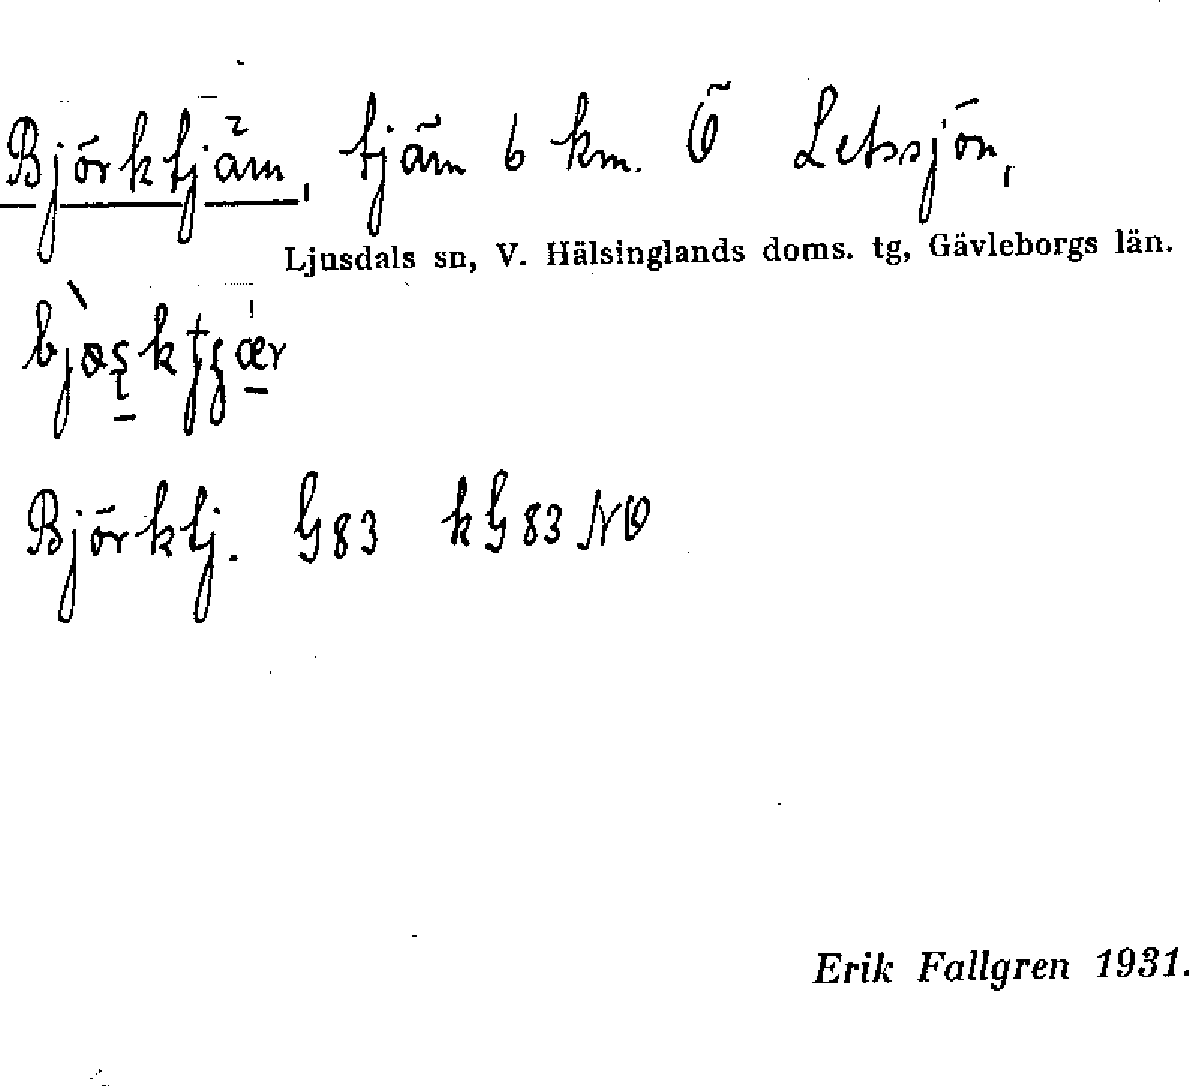 Björktjärn, tjärn 6 km. Ö Letssjön,
Ljusdals sn, V. Hälsinglands doms. tg, Gävleborgs län.
Björktj. G83 kG83NO
Erik Fallgren 1931.